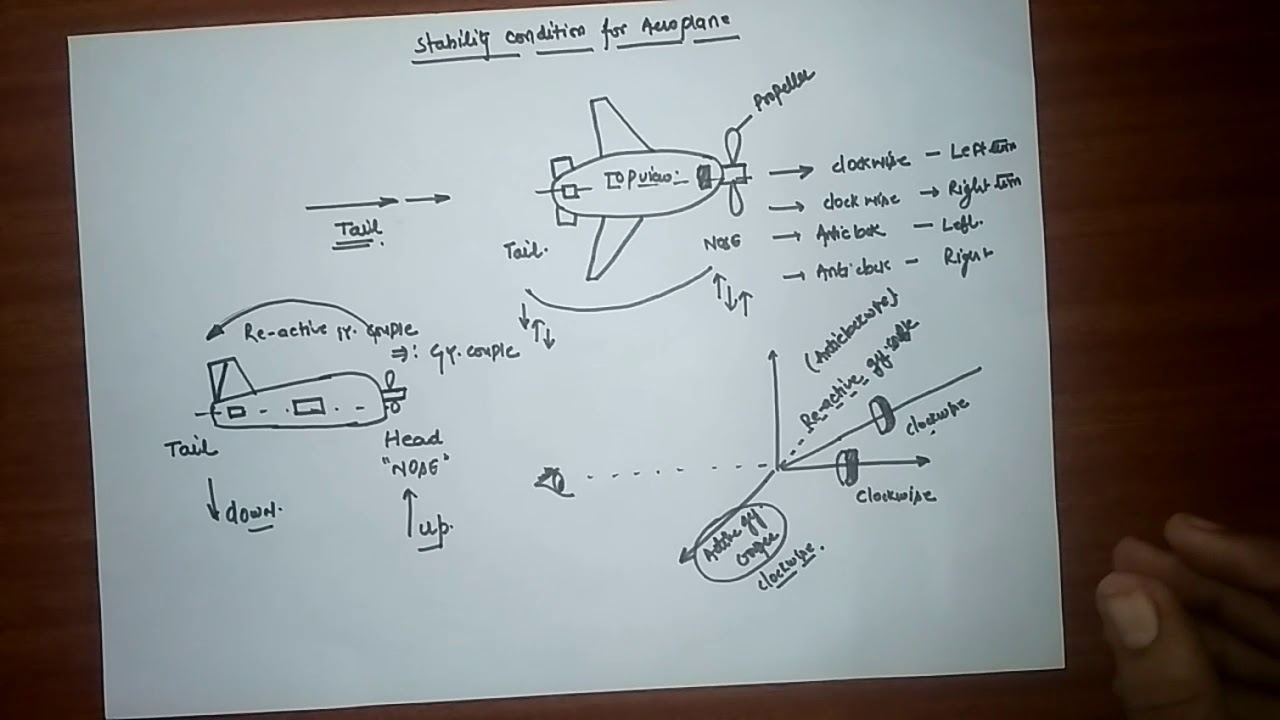 Stability condition for Aeroplane
Propeller
TOP view:-
clockwise - Left turn
clock wise → Right turn
Anticlock - Left.
Anticlock - Right
Tail
Tail.
NOSE
Re-active gy. couple
⇒: Gy. couple
Tail
Head
"NOSE"
down.
up.
(Anticlockwise)
Re-active gy.
clockwise
clockwise
Active gy.
clockwise.